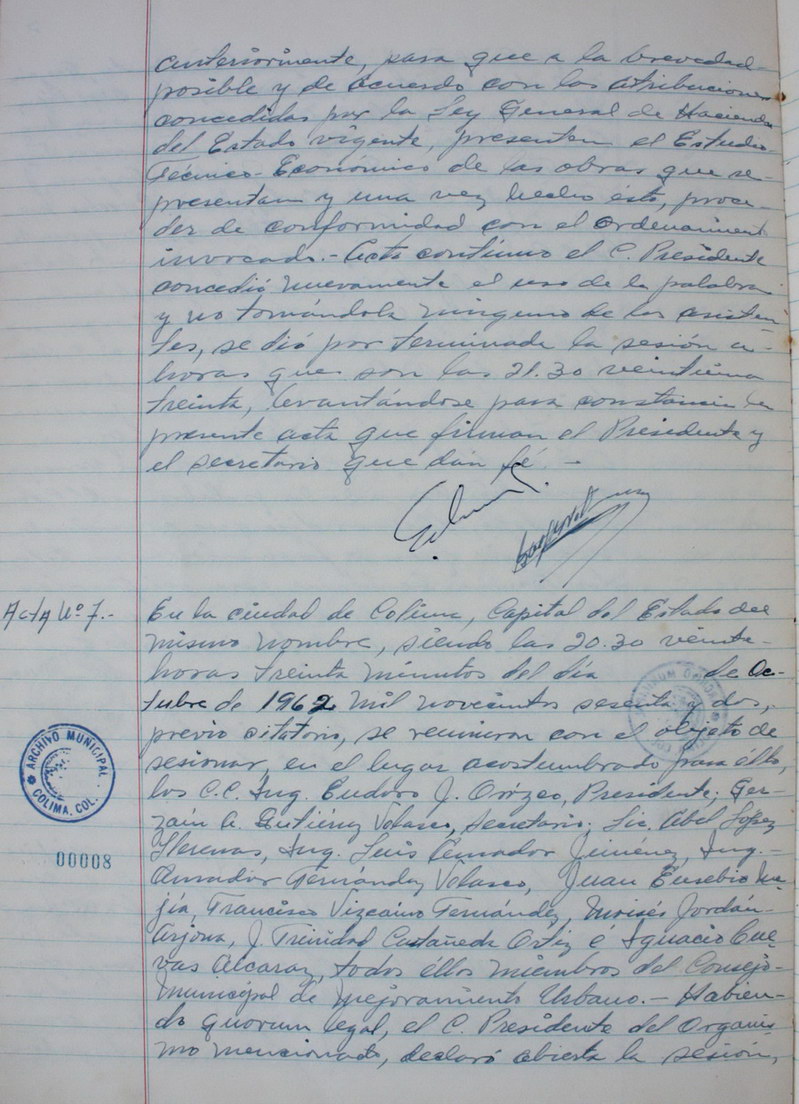 anteriormente, para que a la brevedad
posible y de acuerdo con las atribuciones
concedidas por la Ley General de Hacienda
del Estado vigente, presenten el Estudio
Técnico-Económico de las obras que se
presentan y una vez hecho ésto, proce-
der de conformidad con el Ordenamiento
invocado.- Acto contínuo el C. Presidente
concedió nuevamente el uso de la palabra
y no tomándola ninguno de los asisten
tes, se dió por terminada la sesión a
horas que son las 21.30 veintiuna
treinta, levantándose para constancia la
presente acta que firman el Presidente y
el secretario que dán fé. -
Acta Nº 7.-
En la ciudad de Colima, Capital del Estado del
mismo nombre, siendo las 20.30 veinte
horas treinta minutos del día de Oc-
tubre de 1962 mil novecientos sesenta y dos,
previo citatorio, se reunieron con el objeto de
sesionar, en el lugar acostumbrado para éllo,
los C.C. Ing. Eudoro J. Orozco, Presidente; Ger-
zaín A. Gutiérrez Velasco, Secretario; Lic. Abel López
Llerenas, Ing. Luis Amador Jiménez, Ing.-
Amador Hernández Velasco, Juan Eusebio Me
jía, Francisco Vizcaíno Fernández, Moisés Jordán
Arjona, J. Trinidad Castañeda Ortiz é Ignacio Cue
vas Alcaraz, todos éllos miembros del Consejo-
Municipal de Mejoramiento Urbano.- Habien-
do quorum legal, el C. Presidente del Organis
mo mencionado, declaró abierta la sesión,
ARCHIVO MUNICIPAL
COLIMA, COL.
00008